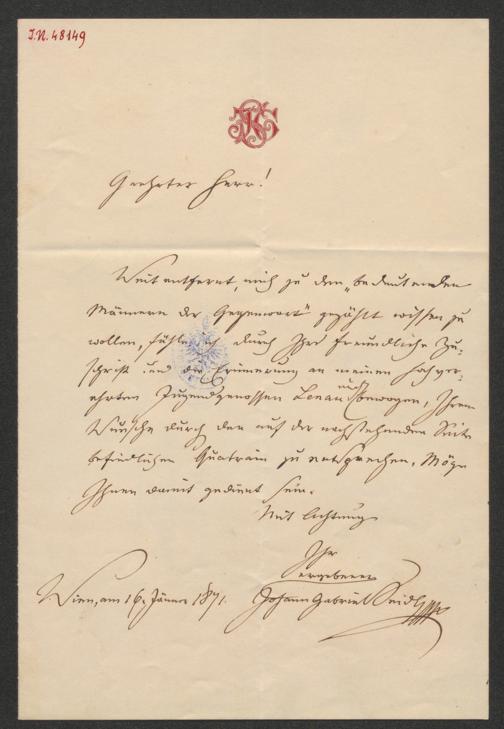 I.N. 48149
JGS
Geehrter Herr!
Weit entfernt, mich zu den „bedeutenden
Männern der Gegenwart" gezählt wissen zu
wollen, fühle ich durch Ihre freundliche Zu-
schrift und die Erinnerung an meinen hochver-
ehrten Jugendgenossen Lenau mich bewogen, Ihrem
Wunsche durch den auf der nachstehenden Seite
befindlichen Quatrain zu entsprechen. Möge
Ihnen damit gedient sein.
Mit Achtung
Ihr
ergebener
Wien, am 16. Jänner 1871. Johann Gabriel Seidl